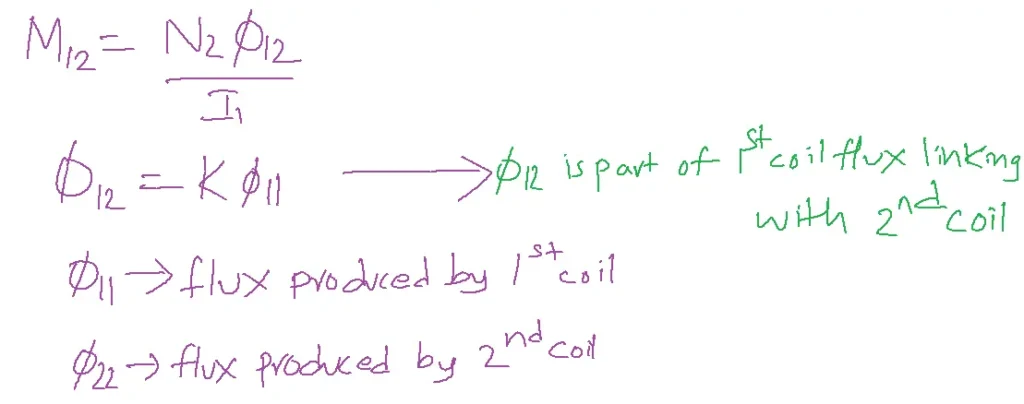 M₁₂ = N₂ϕ₁₂
I₁
ϕ₁₂ = Kϕ₁₁ → ϕ₁₂ is part of 1st coil flux linking
with 2nd coil
ϕ₁₁ → flux produced by 1st coil
ϕ₂₂ → flux produced by 2nd coil